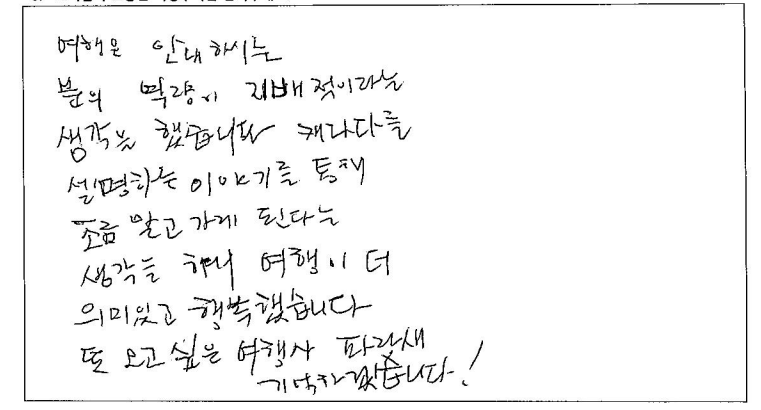 여행은 안내하시는
분의 역량이 지배적이라는
생각을 했습니다 캐나다를
설명하는 이야기를 통해
조금 알고 가게 된다는
생각을 하니 여행이 더
의미있고 행복했습니다
또 오고 싶은 여행사 파랑새
기억하겠습니다!